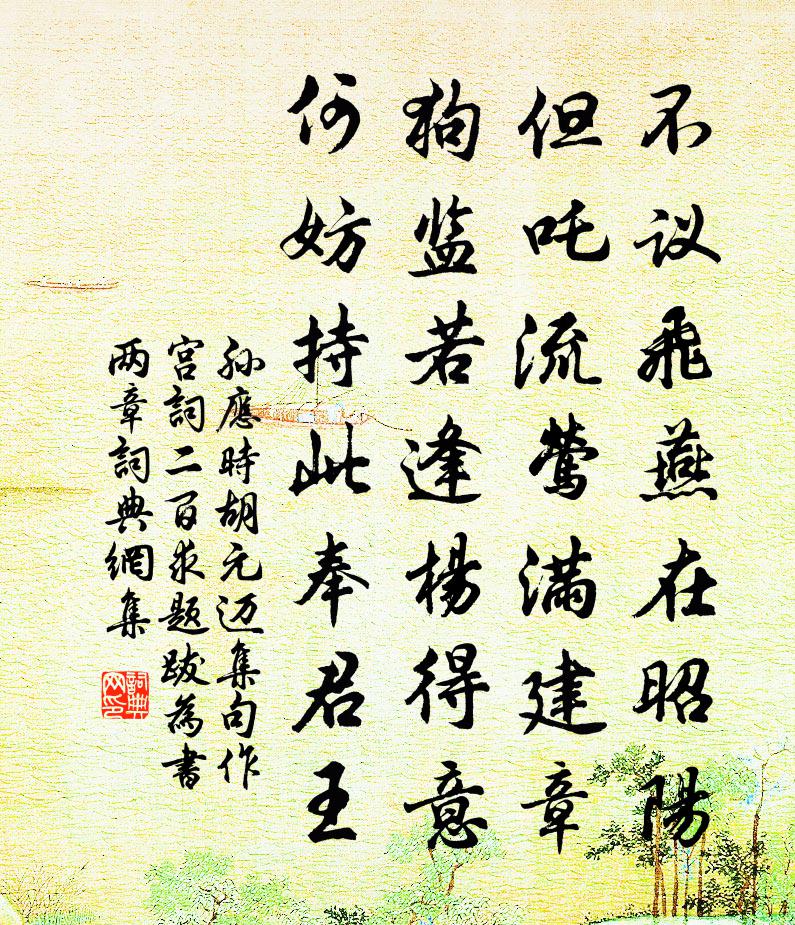 不议飛燕在昭陽
但吒流鶯满建章
狗监若逢楊得意
何妨持此奉君王
孙應時胡元迈集句作
宫詞二百求题跋為書
两章詞典網集
詞典网印